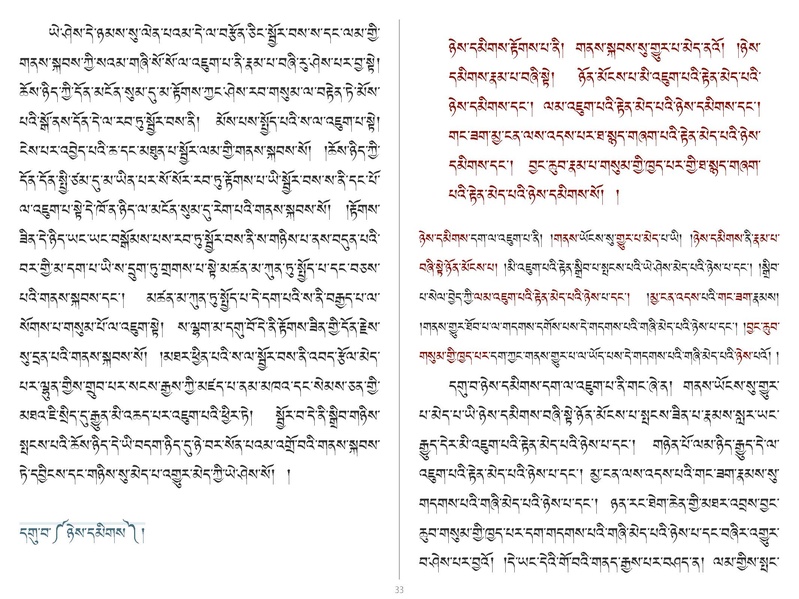 ཡེ་ཤེས་དེ་ཉམས་སུ་ལེན་པའམ་དེ་ལ་བརྩོན་ཅིང་སྦྱོར་བས་ས་དང་ལམ་གྱི་
གནས་སྐབས་ཀྱི་སའམ་གཞི་སོ་སོ་ལ་འཇུག་པ་ནི་རྣམ་པ་བཞི་རུ་ཤེས་པར་བྱ་སྟེ།
ཆོས་ཉིད་ཀྱི་དོན་མངོན་སུམ་དུ་མ་རྟོགས་ཀྱང་ཤེས་རབ་གསུམ་ལ་བརྟེན་ཏེ་མོས་
པའི་སྒོ་ནས་དོན་དེ་ལ་རབ་ཏུ་སྦྱོར་བས་ནི། མོས་པས་སྤྱོད་པའི་ས་ལ་འཇུག་པ་སྟེ།
ངེས་པར་འབྱེད་པའི་ཆ་དང་མཐུན་པ་སྦྱོར་ལམ་གྱི་གནས་སྐབས་སོ། །ཆོས་ཉིད་ཀྱི་
དོན་དོན་སྤྱི་ཙམ་དུ་མ་ཡིན་པར་སོ་སོར་རབ་ཏུ་རྟོགས་པ་ཡི་སྦྱོར་བས་ས་ནི་དང་པོ་
ལ་འཇུག་པ་སྟེ་དེ་ཁོ་ན་ཉིད་ལ་མངོན་སུམ་དུ་རེག་པའི་གནས་སྐབས་སོ། །རྟོགས་
ཟིན་དེ་ཉིད་ཡང་ཡང་བསྒོམས་པས་རབ་ཏུ་སྦྱོར་བས་ནི་ས་གཉིས་པ་ནས་བདུན་པའི་
བར་གྱི་མ་དག་པ་ཡི་ས་དྲུག་ཏུ་གྲགས་པ་སྟེ་མཚན་མ་ཀུན་ཏུ་སྤྱོད་པ་དང་བཅས་
པའི་གནས་སྐབས་དང་། མཚན་མ་ཀུན་ཏུ་སྤྱོད་པ་དེ་དག་པའི་ས་ནི་བརྒྱད་པ་ལ་
སོགས་པ་གསུམ་པོ་ལ་འཇུག་སྟེ། ས་ལྷག་མ་དགུ་བོ་དེ་ནི་རྟོགས་ཟིན་གྱི་དོན་རྗེས་
སུ་དྲན་པའི་གནས་སྐབས་སོ། །མཐར་ཕྱིན་པའི་ས་ལ་སྦྱོར་བས་ནི་འབད་རྩོལ་མེད་
པར་ལྷུན་གྱིས་གྲུབ་པར་སངས་རྒྱས་ཀྱི་མཛད་པ་ནམ་མཁའ་དང་སེམས་ཅན་གྱི་
མཐའ་ཇི་སྲིད་དུ་རྒྱུན་མི་འཆད་པར་འཇུག་པའི་ཕྱིར་ཏེ། སྦྱོར་བ་དེ་ནི་སྒྲིབ་གཉིས་
སྤངས་པའི་ཆོས་ཉིད་དེ་ཡི་བདག་ཉིད་དུ་ཉེ་བར་སོན་པའམ་འགྲོ་བའི་གནས་སྐབས་
ཏེ་དབྱིངས་དང་གཉིས་སུ་མེད་པ་འགྱུར་མེད་ཀྱི་ཡེ་ཤེས་སོ། །
དགུ་བ་༼ཉེས་དམིགས༽།
ཉེས་དམིགས་རྟོགས་པ་ནི། གནས་སྐབས་སུ་གྱུར་པ་མེད་ནའོ། །ཉེས་
དམིགས་རྣམ་པ་བཞི་སྟེ། ཉོན་མོངས་པ་མི་འཇུག་པའི་རྟེན་མེད་པའི་
ཉེས་དམིགས་དང་། ལམ་འཇུག་པའི་རྟེན་མེད་པའི་ཉེས་དམིགས་དང་།
གང་ཟག་མྱ་ངན་ལས་འདས་པར་ཐ་སྙད་གཞག་པའི་རྟེན་མེད་པའི་ཉེས་
དམིགས་དང་། བྱང་ཆུབ་རྣམ་པ་གསུམ་གྱི་ཁྱད་པར་གྱི་ཐ་སྙད་གཞག་
པའི་རྟེན་མེད་པའི་ཉེས་དམིགས་སོ། །
ཉེས་དམིགས་དག་ལ་འཇུག་པ་ནི། །གནས་ཡོངས་སུ་གྱུར་པ་མེད་པ་ཡི། །ཉེས་དམིགས་ནི་རྣམ་པ་
བཞི་སྟེ་ཉོན་མོངས་པ། །མི་འཇུག་པའི་རྟེན་སྒྲིབ་པ་སྤངས་པའི་ཡེ་ཤེས་མེད་པའི་ཉེས་པ་དང་། །སྒྲིབ་
པ་སེལ་བྱེད་ཀྱི་ལམ་འཇུག་པའི་རྟེན་མེད་པའི་ཉེས་པ་དང་། །མྱ་ངན་འདས་པའི་གང་ཟག་རྣམས།
།གནས་གྱུར་ཐོབ་པ་ལ་གདགས་དགོས་པས་དེ་གདགས་པའི་གཞི་མེད་པའི་ཉེས་པ་དང་། །བྱང་ཆུབ་
གསུམ་གྱི་ཁྱད་པར་དག་ཀྱང་གནས་གྱུར་པ་ལ་ཡོད་པས་དེ་གདགས་པའི་གཞི་མེད་པའི་ཉེས་པའོ། །
དགུ་བ་ཉེས་དམིགས་དག་ལ་འཇུག་པ་ནི་གང་ཞེ་ན། གནས་ཡོངས་སུ་གྱུར་
པ་མེད་པ་ཡི་ཉེས་དམིགས་བཞི་སྟེ་ཉོན་མོངས་པ་སྤངས་ཟིན་པ་རྣམས་སླར་ཡང་
རྒྱུད་དེར་མི་འཇུག་པའི་རྟེན་མེད་པའི་ཉེས་པ་དང་། གཉེན་པོ་ལམ་ཉིད་རྒྱུད་དེ་ལ་
འཇུག་པའི་རྟེན་མེད་པའི་ཉེས་པ་དང་། མྱ་ངན་ལས་འདས་པའི་གང་ཟག་རྣམས་སུ་
གདགས་པའི་གཞི་མེད་པའི་ཉེས་པ་དང་། ཉན་རང་ཐེག་ཆེན་གྱི་མཐར་འབྲས་བྱང་
ཆུབ་གསུམ་གྱི་ཁྱད་པར་དག་གདགས་པའི་གཞི་མེད་པའི་ཉེས་པ་དང་བཞིར་འགྱུར་
བ་ཤེས་པར་བྱའོ། །དེ་ཡང་དེའི་གོ་བའི་གནད་རྒྱས་པར་བཤད་ན། ལམ་གྱིས་སྤང་
33